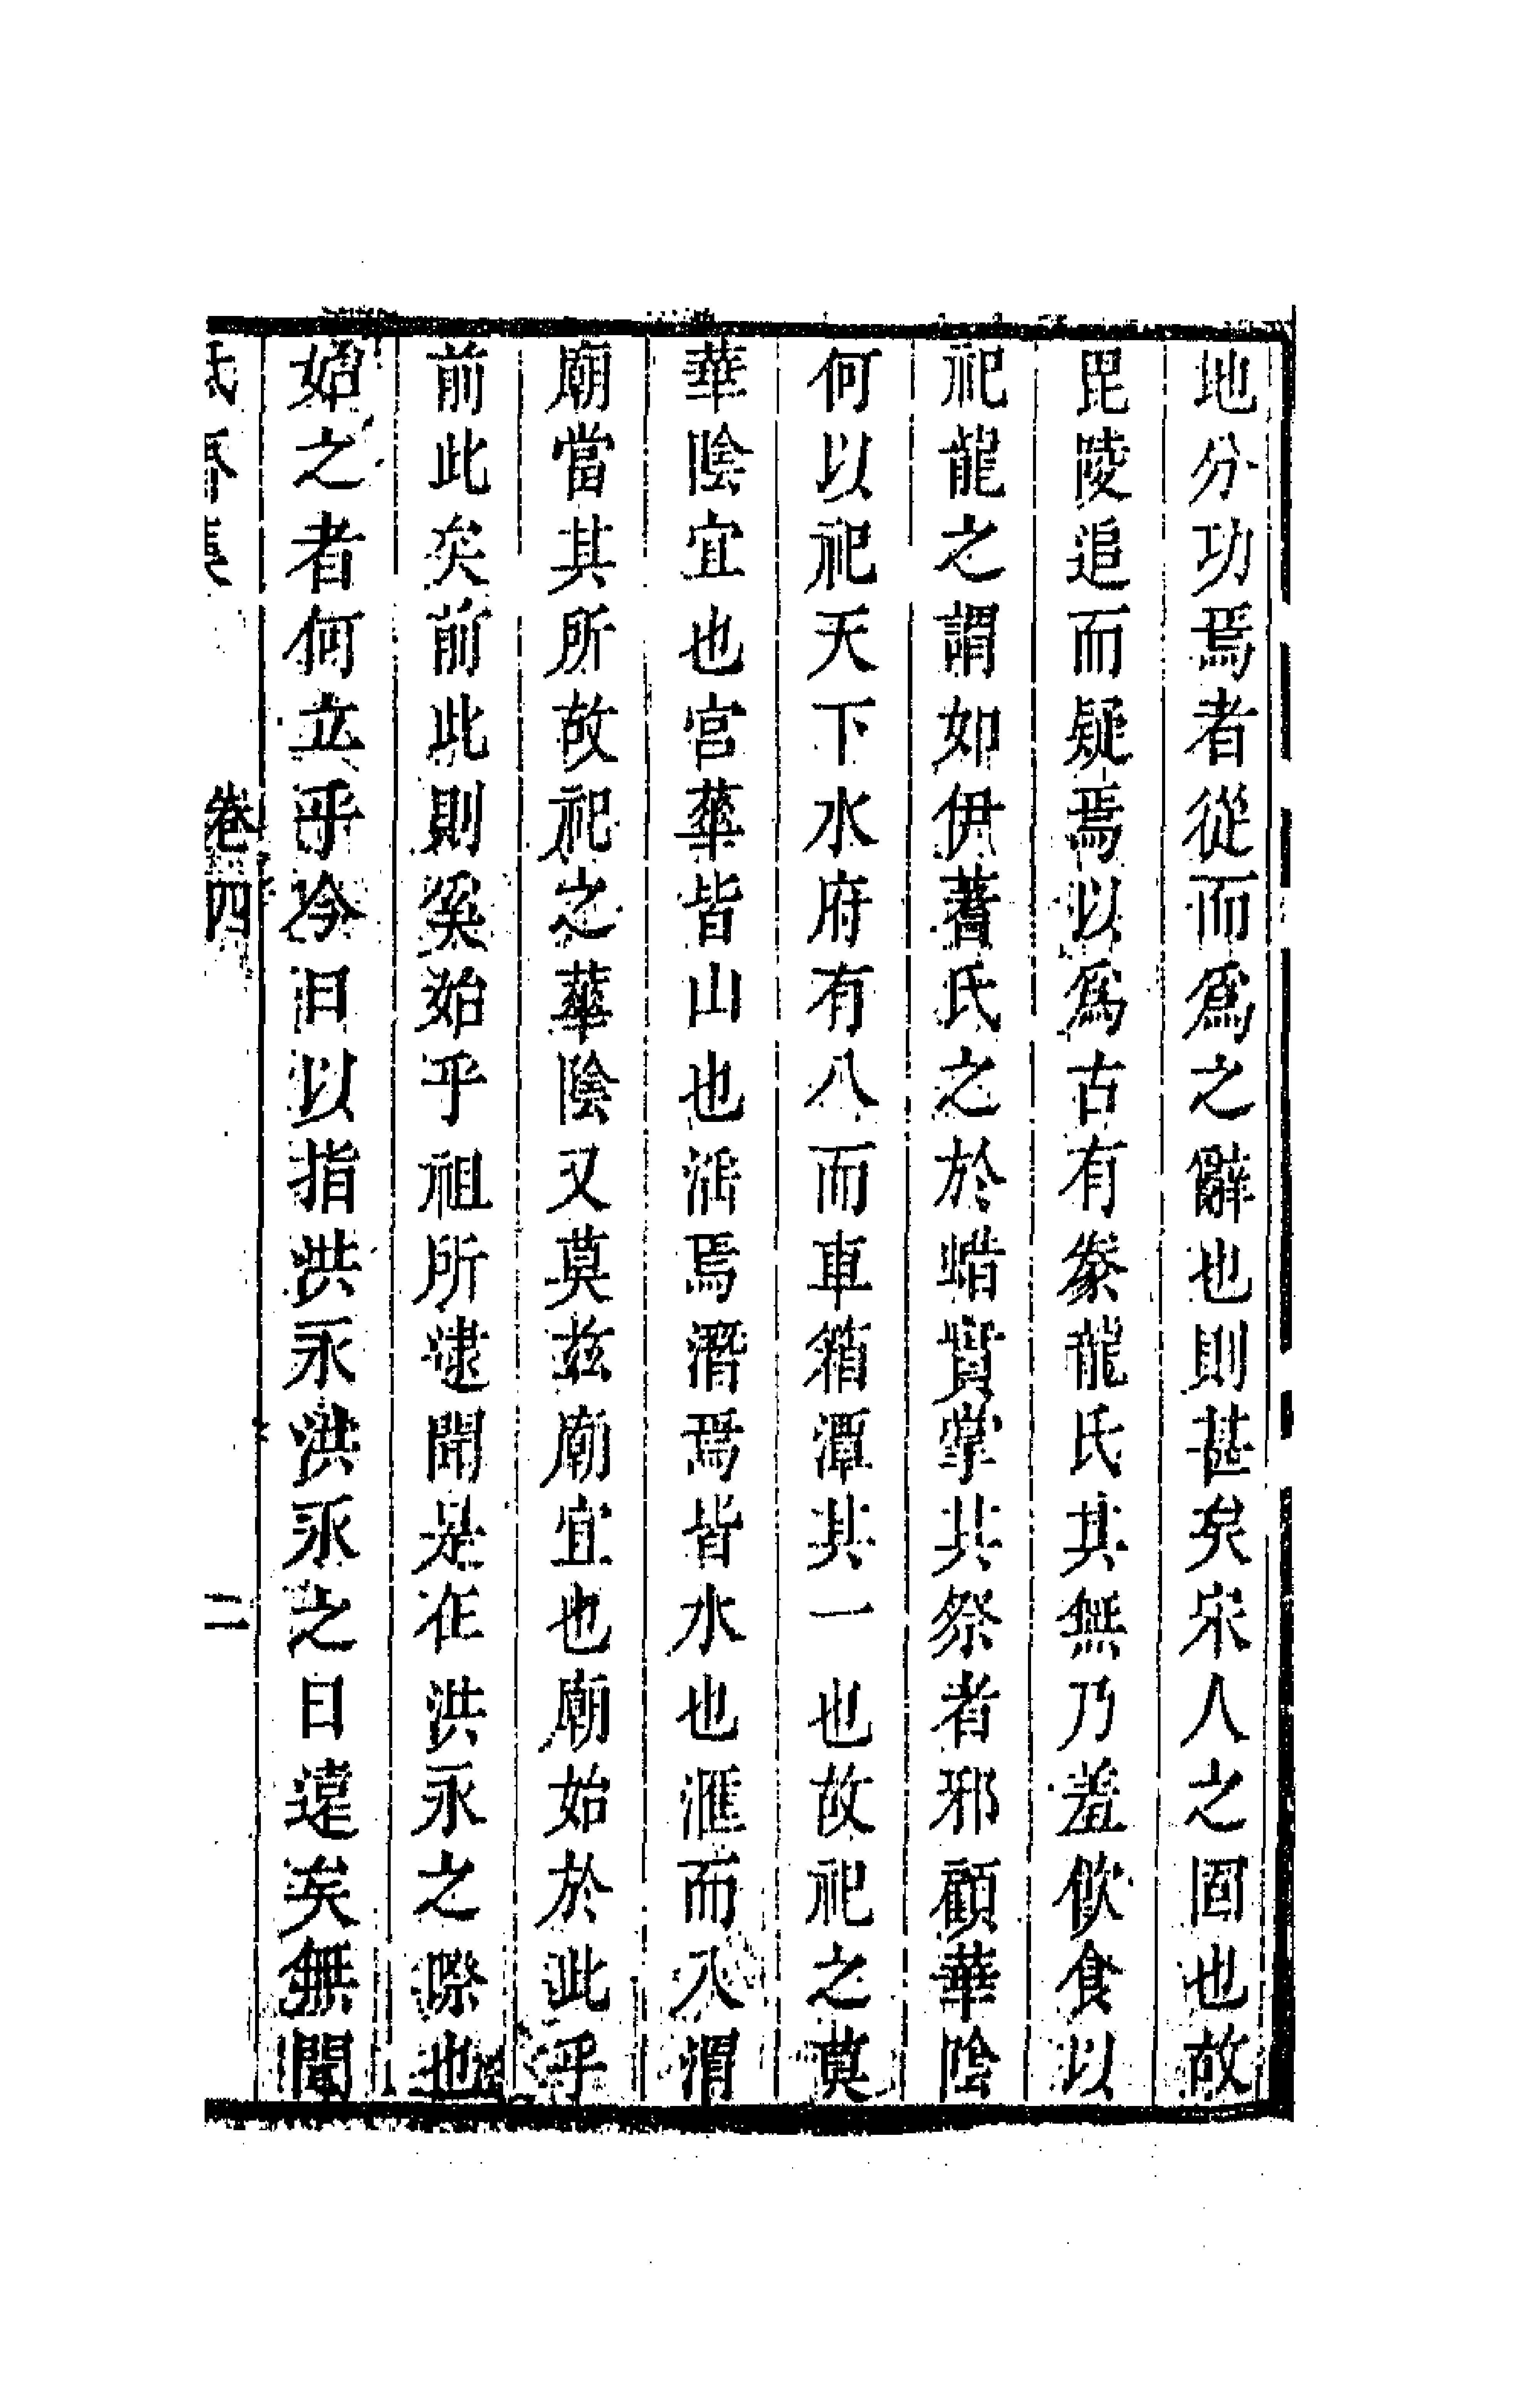 地分功焉者從而爲之辭也則甚矣宋人之固也故
毘陵追而疑焉以爲古有豢龍氏其無乃羞飲食以
祀龍之謂如伊蓍氏之於蜡實掌其祭者邪顧華陰
何以祀天下水府有八而車箱潭其一也故祀之莫
華陰宜也宮華皆山也湉焉潛焉皆水也滙而入渭
廟當其所故祀之華陰又莫茲廟宜也廟始於此乎
前此矣前此則奚始乎祖所逮聞是在洪永之際也
始之者何立乎今日以指洪永洪永之日遠矣無聞
卷四
二